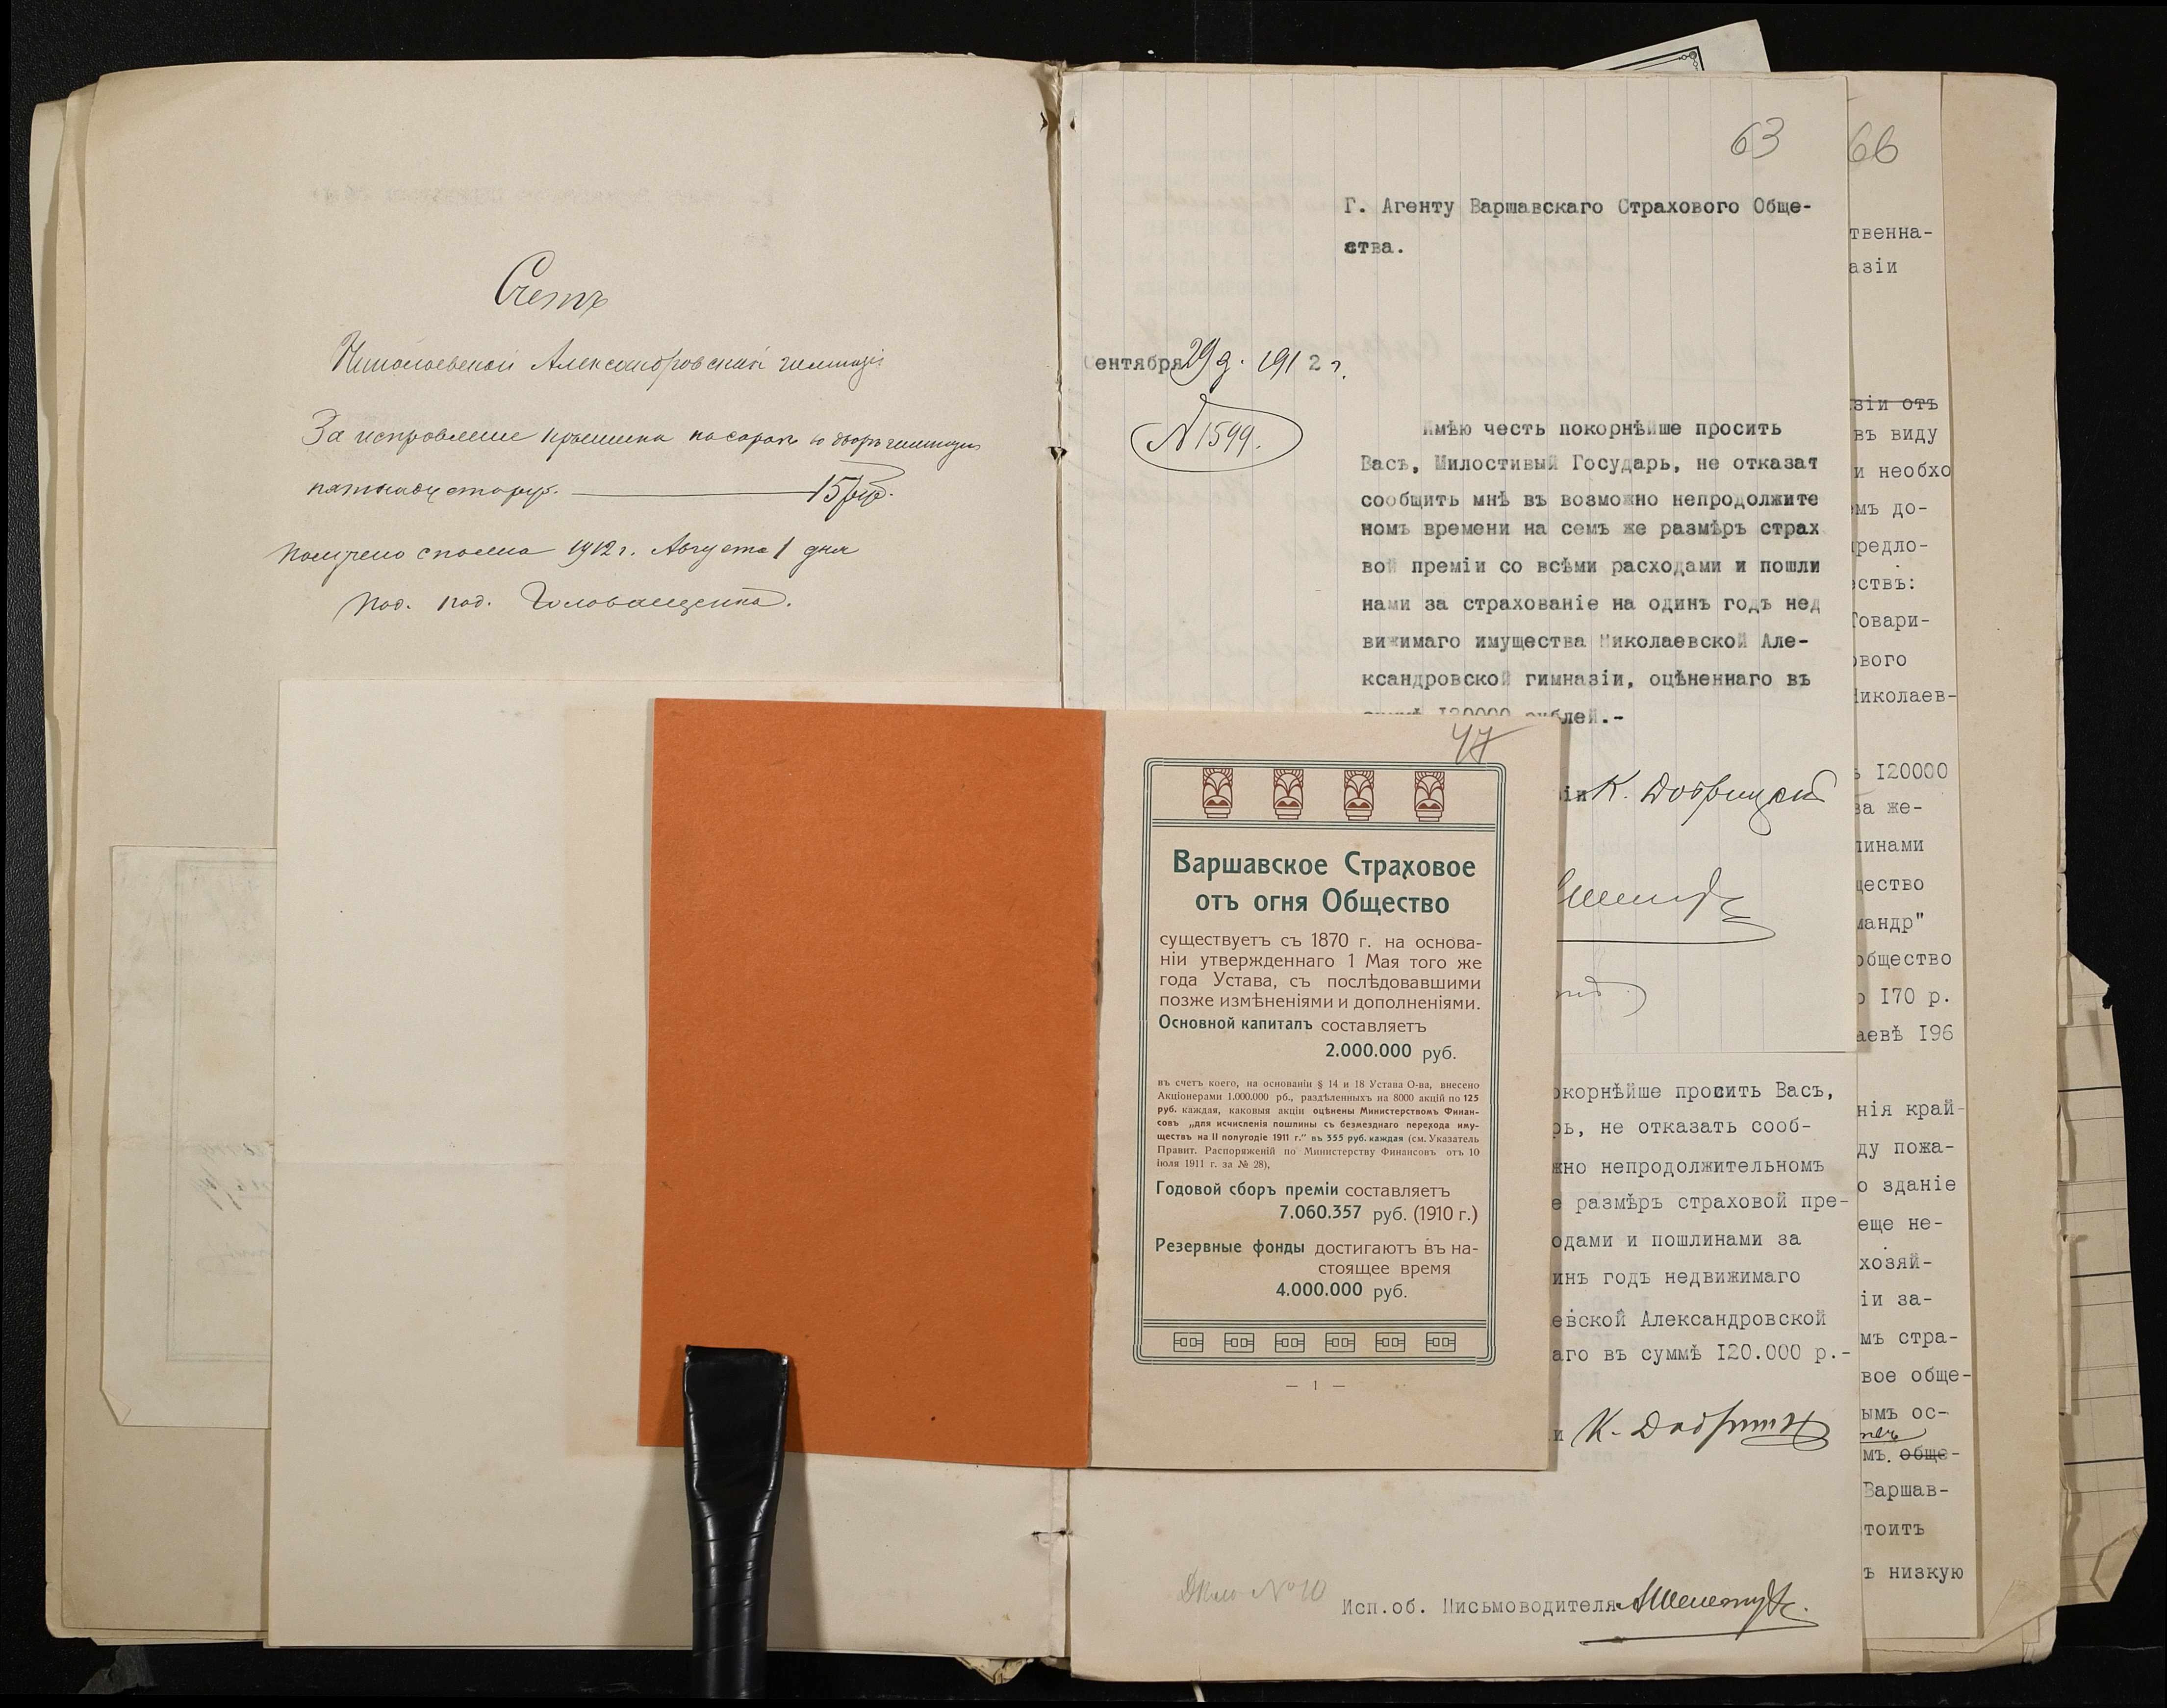 Счетъ
Николаевской Александровской гимназіи
За исправленіе крышъ на сараѣ во дворѣ гимназіи
пятнадцать руб. 15 руб.
Получено сполна 1912 г. Августа 1 дня
Под. Под. Головащенко.
63
Г. Агенту Варшавскаго Страхового Обще-
ства.
Сентября 29 д. 1912 г.
№ 1599.
Имѣю честь покорнѣйше просить
Васъ, Милостивый Государь, не отказат
сообщить мнѣ въ возможно непродолжите
номъ времени на семъ же размѣръ страх
вой преміи со всѣми расходами и пошли
нами за страхованіе на одинъ годъ нед
вижимаго имущества Николаевской Але-
ксандровской гимназіи, оцѣненнаго въ
суммѣ I20000 рублей.-
47
Варшавское Страховое
отъ огня Общество
существуетъ съ 1870 г. на основа-
ніи утвержденнаго 1 Мая того же
года Устава, съ послѣдовавшими
позже измѣненіями и дополненіями.
Основной капиталъ составляетъ
2.000.000 руб.
въ счетъ коего, на основаніи § 14 и 18 Устава О-ва, внесено
Акціонерами 1.000.000 рб., раздѣленныхъ на 8000 акцій по 125
руб. каждая, каковыя акціи оцѣнены Министерствомъ Финан-
совъ „для исчисленія пошлины съ безмезднаго перехода иму-
ществъ на II полугодіе 1911 г." въ 355 руб. каждая (см. Указатель
Правит. Распоряженій по Министерству Финансовъ отъ 10
іюля 1911 г. за № 28),
Годовой сборъ преміи составляетъ
7.060.357 руб. (1910 г.)
Резервные фонды достигаютъ въ на-
стоящее время
4.000.000 руб.
— 1 —
іи К. Добрицкій
окорнѣйше просить Васъ,
рь, не отказать сооб-
жно непродолжительномъ
е размѣръ страховой пре-
одами и пошлинами за
инъ годъ недвижимаго
евской Александровской
аго въ суммѣ I20.000 р.-
и К.
Дѣло № 10
Исп.об. Письмоводителя
66
твенна-
азіи
зіи отъ
въ виду
и необхо
мъ до-
редло-
ествъ:
Товари-
ового
Николаев-
ъ I20000
за же-
линами
щество
мандр"
общество
о I70 р.
аевѣ I96
нія край-
ду пожа-
о зданіе
еще не-
хозяй-
іи за-
мъ стра-
вое обще-
ымъ ос-
мъ. обще-
Варшав-
тоитъ
ъ низкую